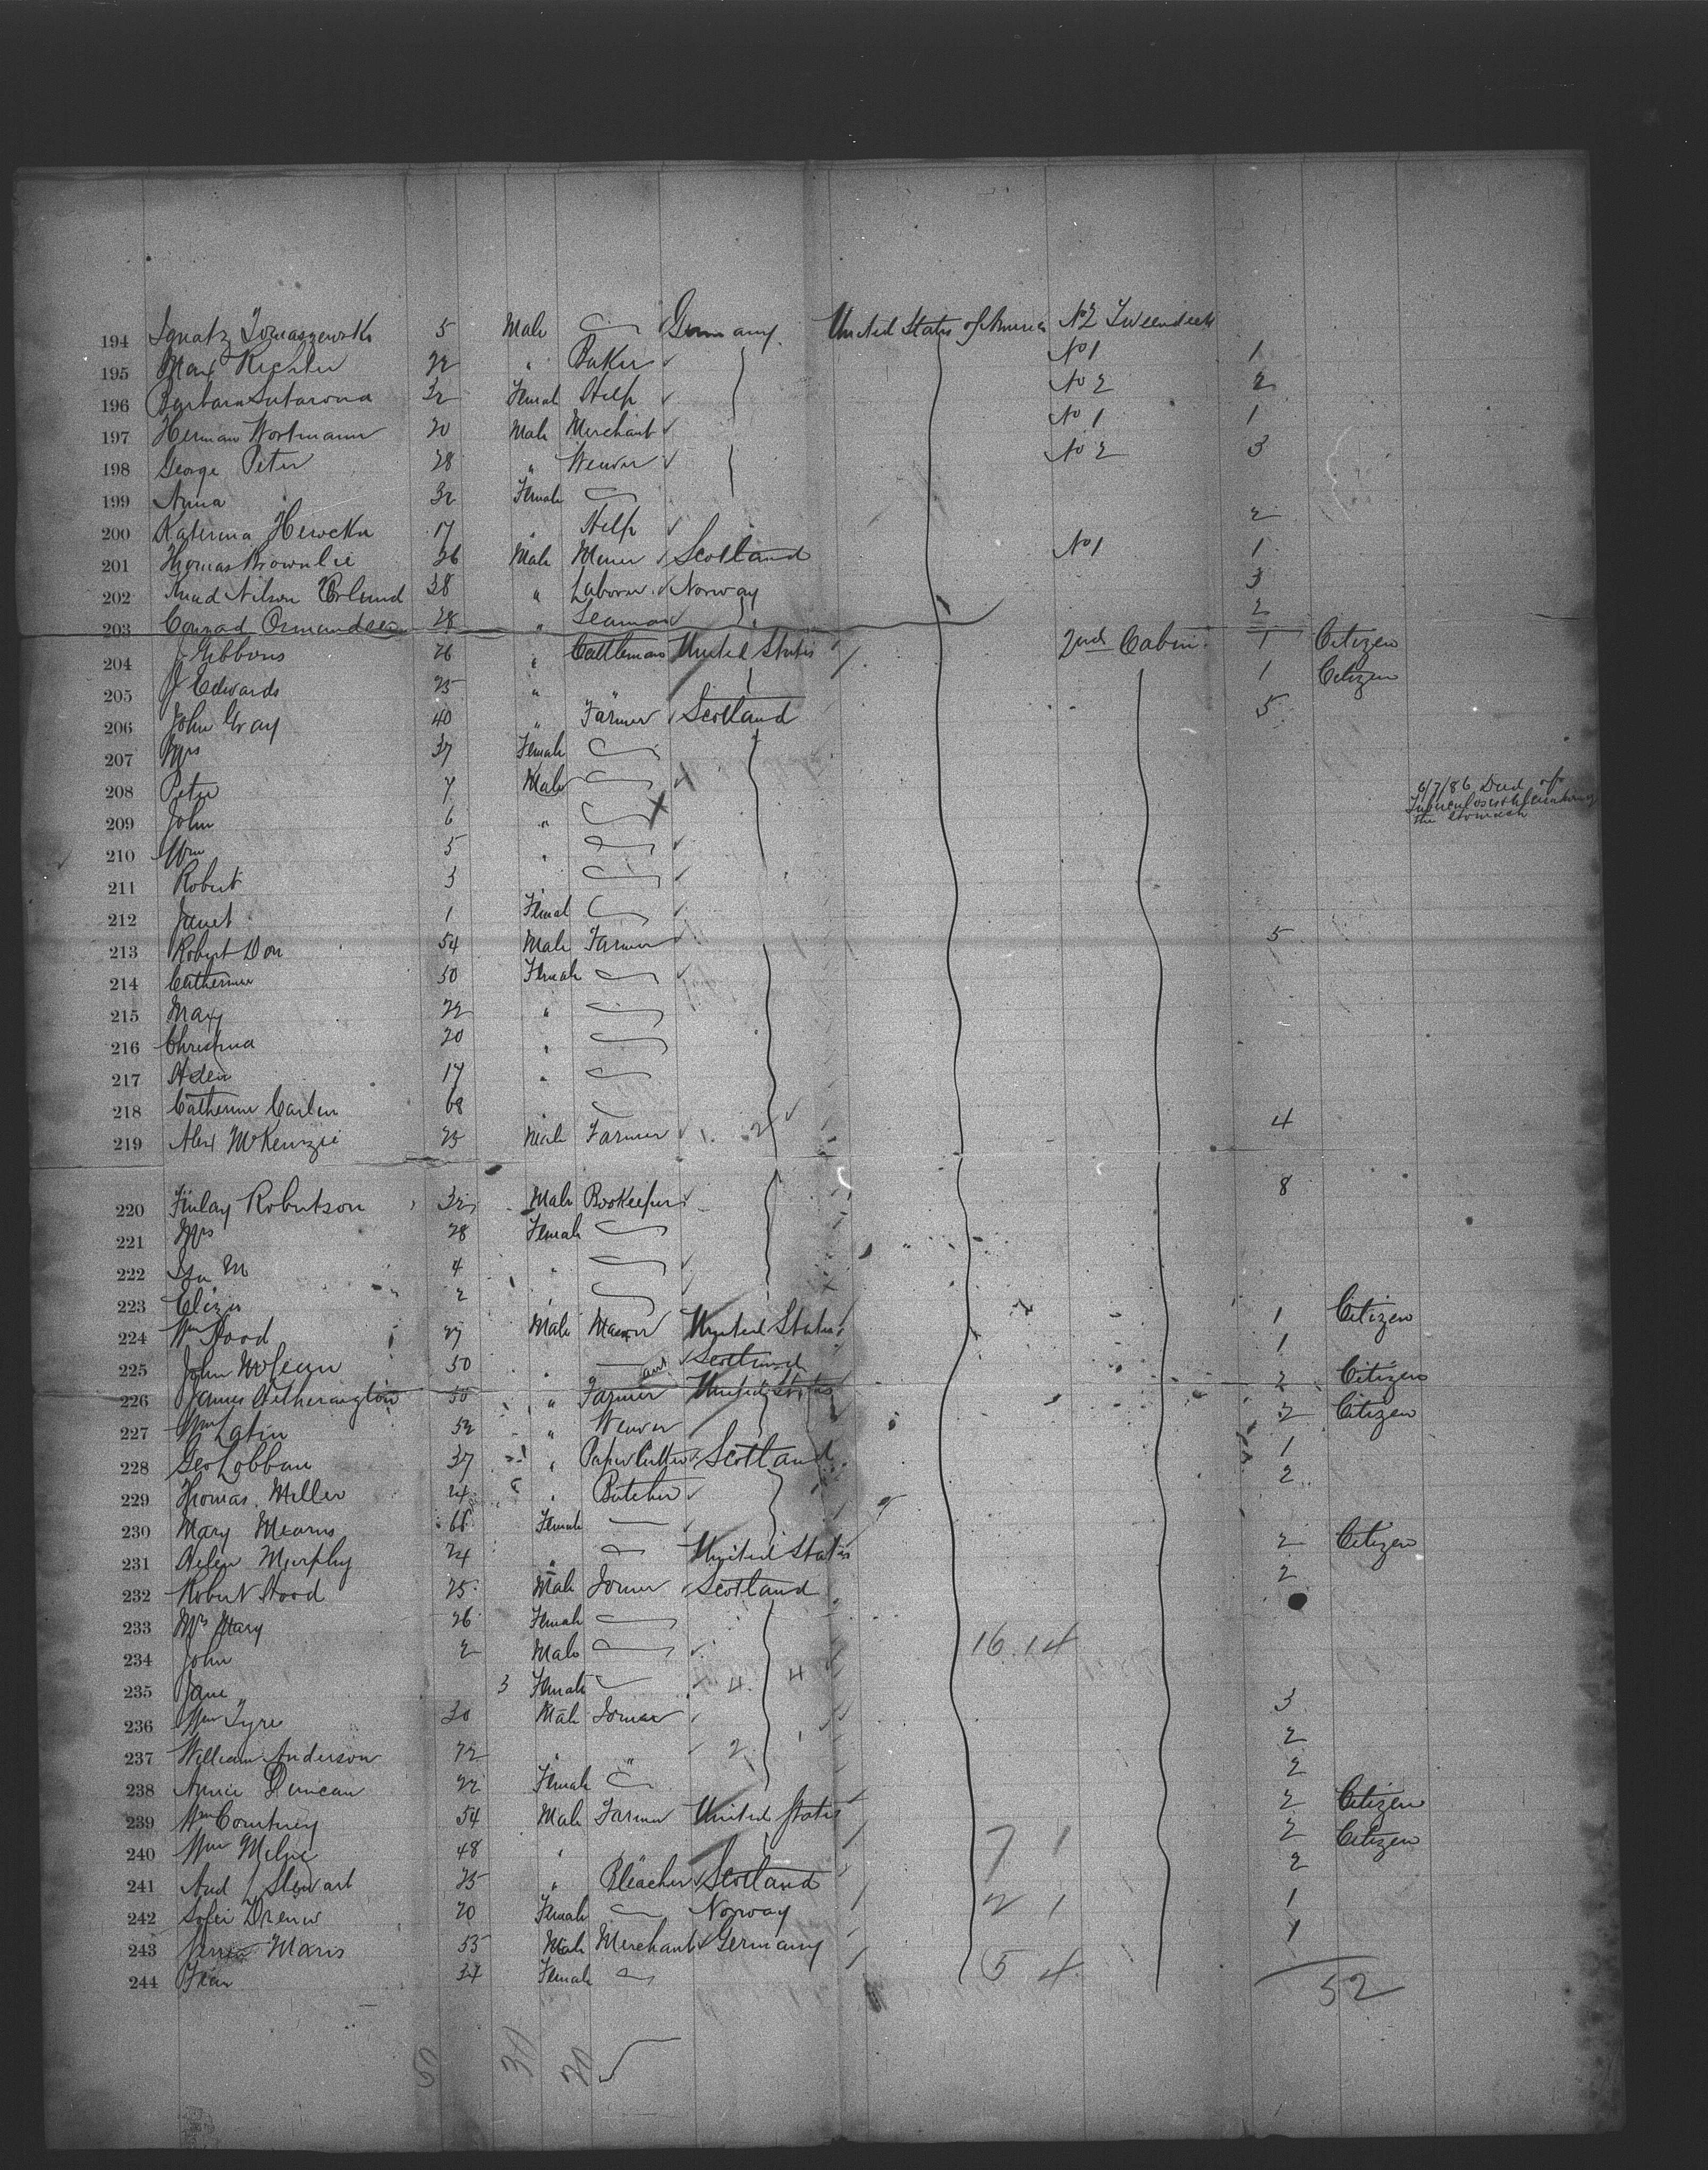 194 Ignatz Tomaszewski 5 Male Germany United States of America No 2 Tweendeck
195 Max Richter 22 " Baker No 1 1
196 Barbara 32 Femal Help No 2 2
197 Herman Wortmann 20 Male Merchant No 1 1
198 George Peter 28 " Weaver No 2 3
199 Anna 32 Female
200 Katerina 17 " Help 2
201 Thomas Brownlie 26 Male Miner Scotland No 1 1
202 Knud Nilson 38 " Laborer Norway 3
203 Conrad Ormundsen 28 " Seaman 2
204 J Gibbons 26 " Cattleman United States 2nd Cabin 1 Citizen
205 J Edwards 25 " " 1 Citizen
206 John Gray 40 " Farmer Scotland 5
207 Mrs 37 Female
208 Peter 7 Male
209 John 6 " 6/7/86 Died of Tuberculosis the stomach
210 Wm 5 "
211 Robert 3 "
212 Janet 1 Femal
213 Robert Don 54 Male Farmer 5
214 Catherine 50 Female
215 Mary 22 "
216 Christina 20 "
217 Helen 17 "
218 Catherine 68 "
219 Alex McKenzie 25 Male Farmer 4
220 Finlay Robertson 32 Male Bookeeper 8
221 Mrs 28 Female
222 M 4 "
223 Eliza 2 "
224 Wm Hood 27 Male United States 1 Citizen
225 John McLean 50 " Scotland 1
226 James Hetherington 50 " Farmer United States 2 Citizen
227 Wm Latin 52 " Weaver 2 Citizen
228 Geo Lobban 37 " Paper Cutter Scotland 1
229 Thomas Miller 24 " Butcher 2
230 Mary Mearns Female
231 Helen Murphy 24 " United States 2 Citizen
232 Robert Hood 25 Male Joiner Scotland 2
233 Mrs Mary 26 Female
234 John 2 Male 16 . 14
235 Jane 3 Female 4 4
236 Wm Tyre 30 Male Joiner 3
237 William Anderson 72 " " 2 1 2
238 Annie Duncan 22 Female 2
239 Wm Courtney 54 Male Farmer United States 2 Citizen
240 Wm Milne 48 " " 7 1 2 Citizen
241 And J Stewart 25 " Bleacher Scotland 2
242 20 Female Norway 2 1 1
243 Maris 53 Male Merchant Germany 1
244 34 Female 5 4
52
30 20